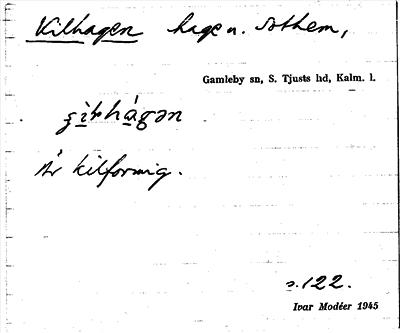 Kilhagen hage u. Tothem,
Gamleby sn, S. Tjusts hd, Kalm. l.
Är kilformig.
s. 122.
Ivar Modéer 1945